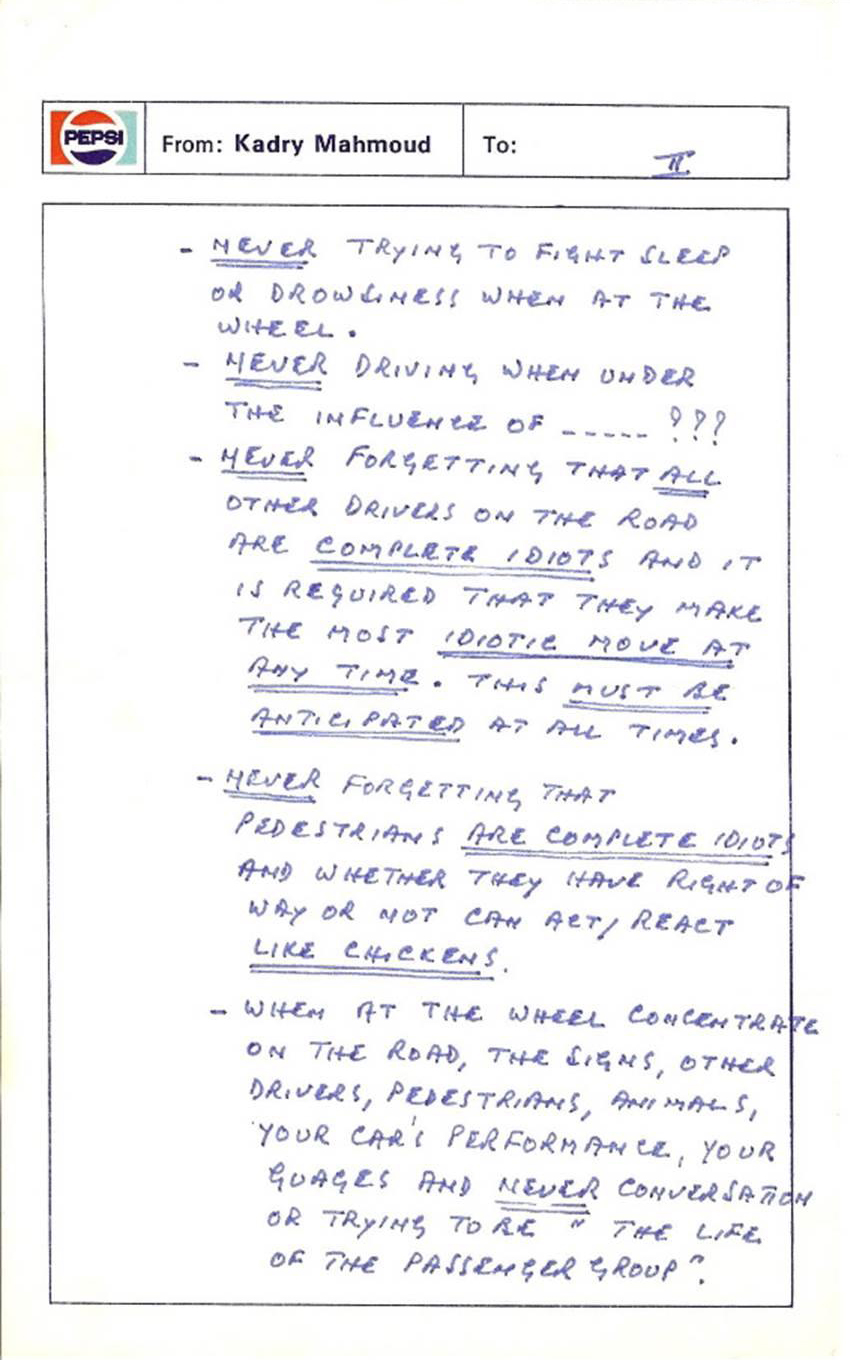 PEPSI
From: Kadry Mahmoud
To:
II
- NEVER TRYING TO FIGHT SLEEP
OR DROWSINESS WHEN AT THE
WHEEL.
- NEVER DRIVING WHEN UNDER
THE INFLUENCE OF ----- ???
- NEVER FORGETTING THAT ALL
OTHER DRIVERS ON THE ROAD
ARE COMPLETE IDIOTS AND IT
IS REQUIRED THAT THEY MAKE
THE MOST IDIOTIC MOVE AT
ANY TIME. THIS MUST BE
ANTICIPATED AT ALL TIMES.
- NEVER FORGETTING THAT
PEDESTRIANS ARE COMPLETE IDIOTS
AND WHETHER THEY HAVE RIGHT OF
WAY OR NOT CAN ACT/REACT
LIKE CHICKENS.
- WHEN AT THE WHEEL CONCENTRATE
ON THE ROAD, THE SIGNS, OTHER
DRIVERS, PEDESTRIANS, ANIMALS,
YOUR CAR'S PERFORMANCE, YOUR
GUAGES AND NEVER CONVERSATION
OR TRYING TO BE " THE LIFE
OF THE PASSENGER GROUP".